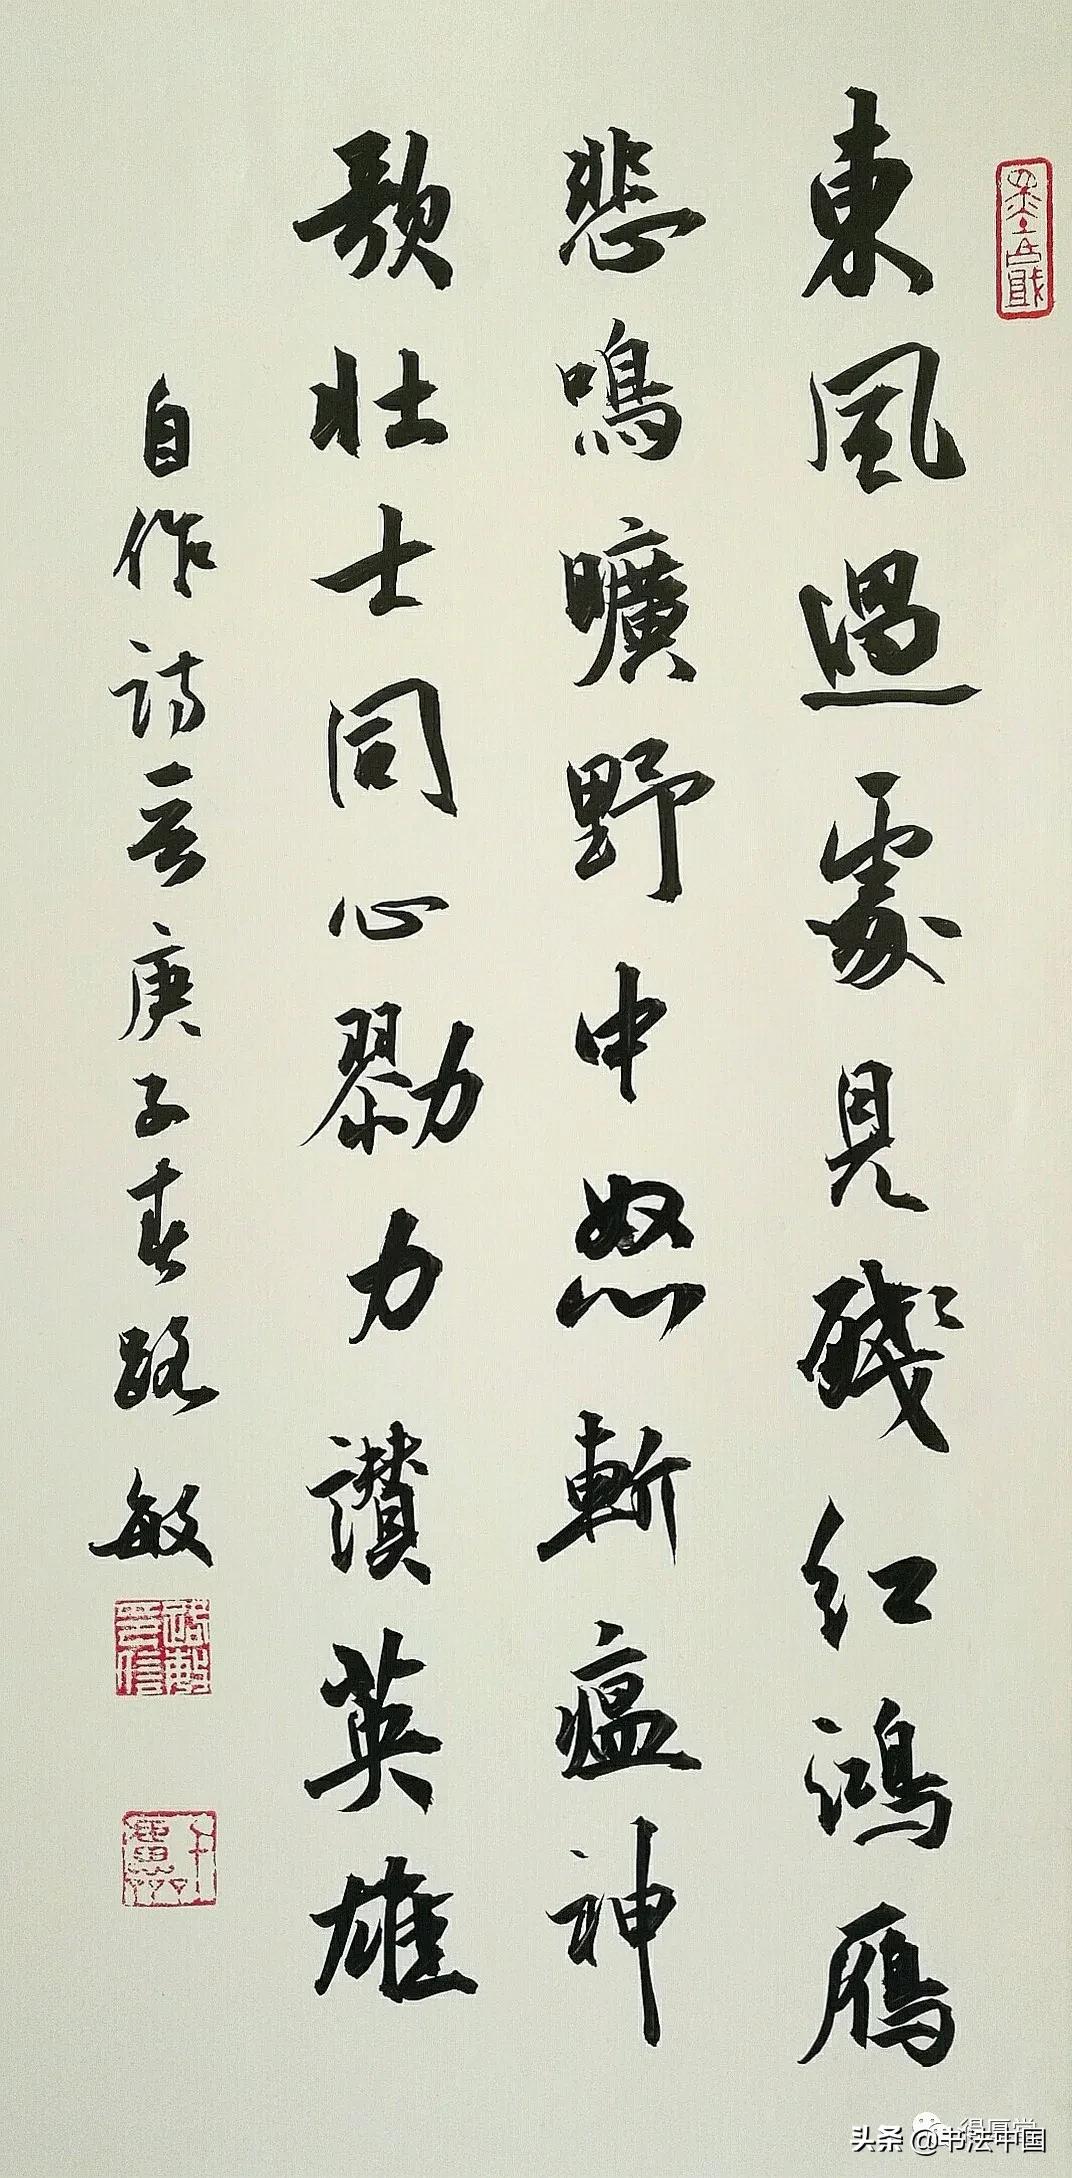 東風過處見殘红鴻鴈
悲鳴曠野中怒斬瘟神
歌壯士同心勠力讚英雄
自作詩一首庚子春路敏
头条 @书法中国